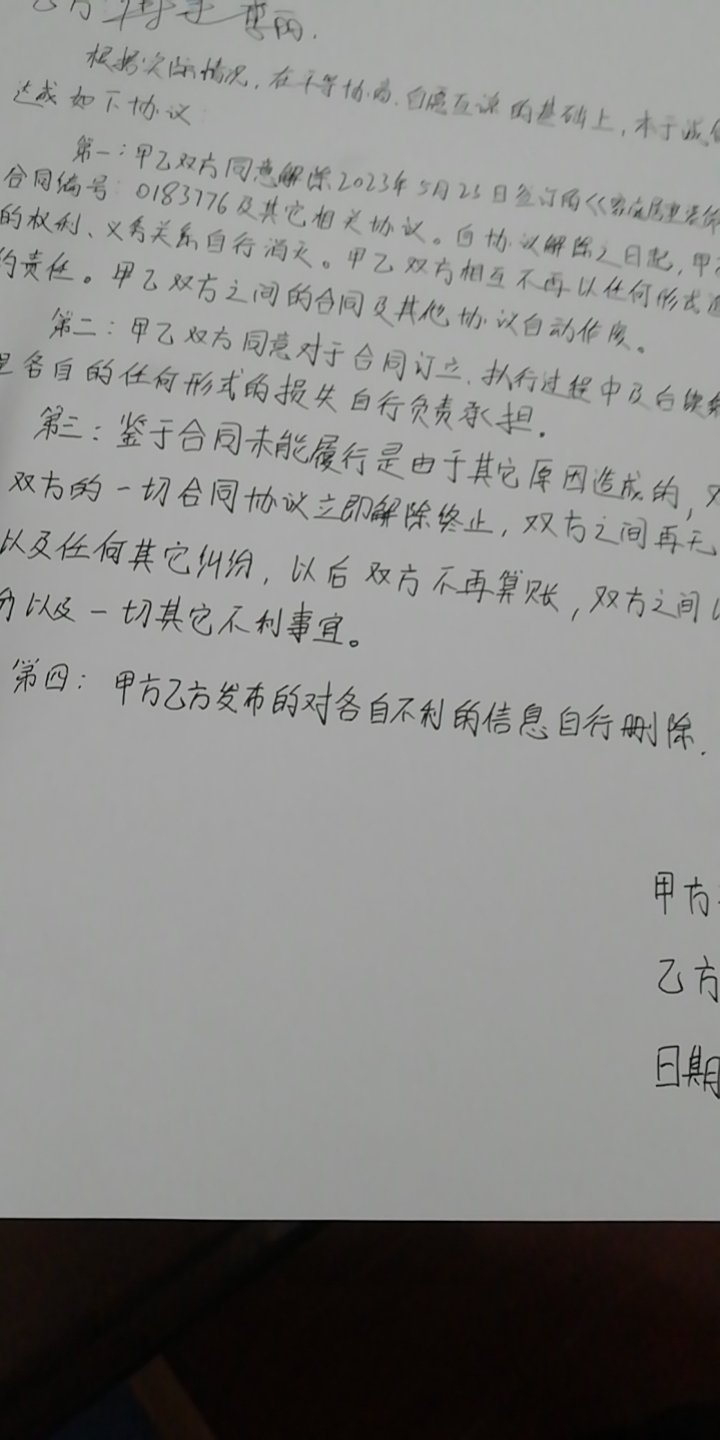 乙方
根据实际情况,在平等协商、自愿互谅的基础上,本于诚
达成如下协议
第一:甲乙双方同意解除2023年5月23日签订的《家庭居室装饰
合同编号:0183776及其它相关协议。自协议解除之日起,甲
的权利、义务关系自行消灭。甲乙双方相互不再以任何形式
约责任。甲乙双方之间的合同及其他协议自动作废。
第二:甲乙双方同意对于合同订立、执行过程中及后续
各自的任何形式的损失自行负责承担.
第三:鉴于合同未能履行是由于其它原因造成的,
双方的一切合同协议立即解除终止,双方之间再无
以及任何其它纠纷,以后双方不再算账,双方之间
以及一切其它不利事宜。
第四:甲方乙方发布的对各自不利的信息自行删除.
甲方
乙方
日期